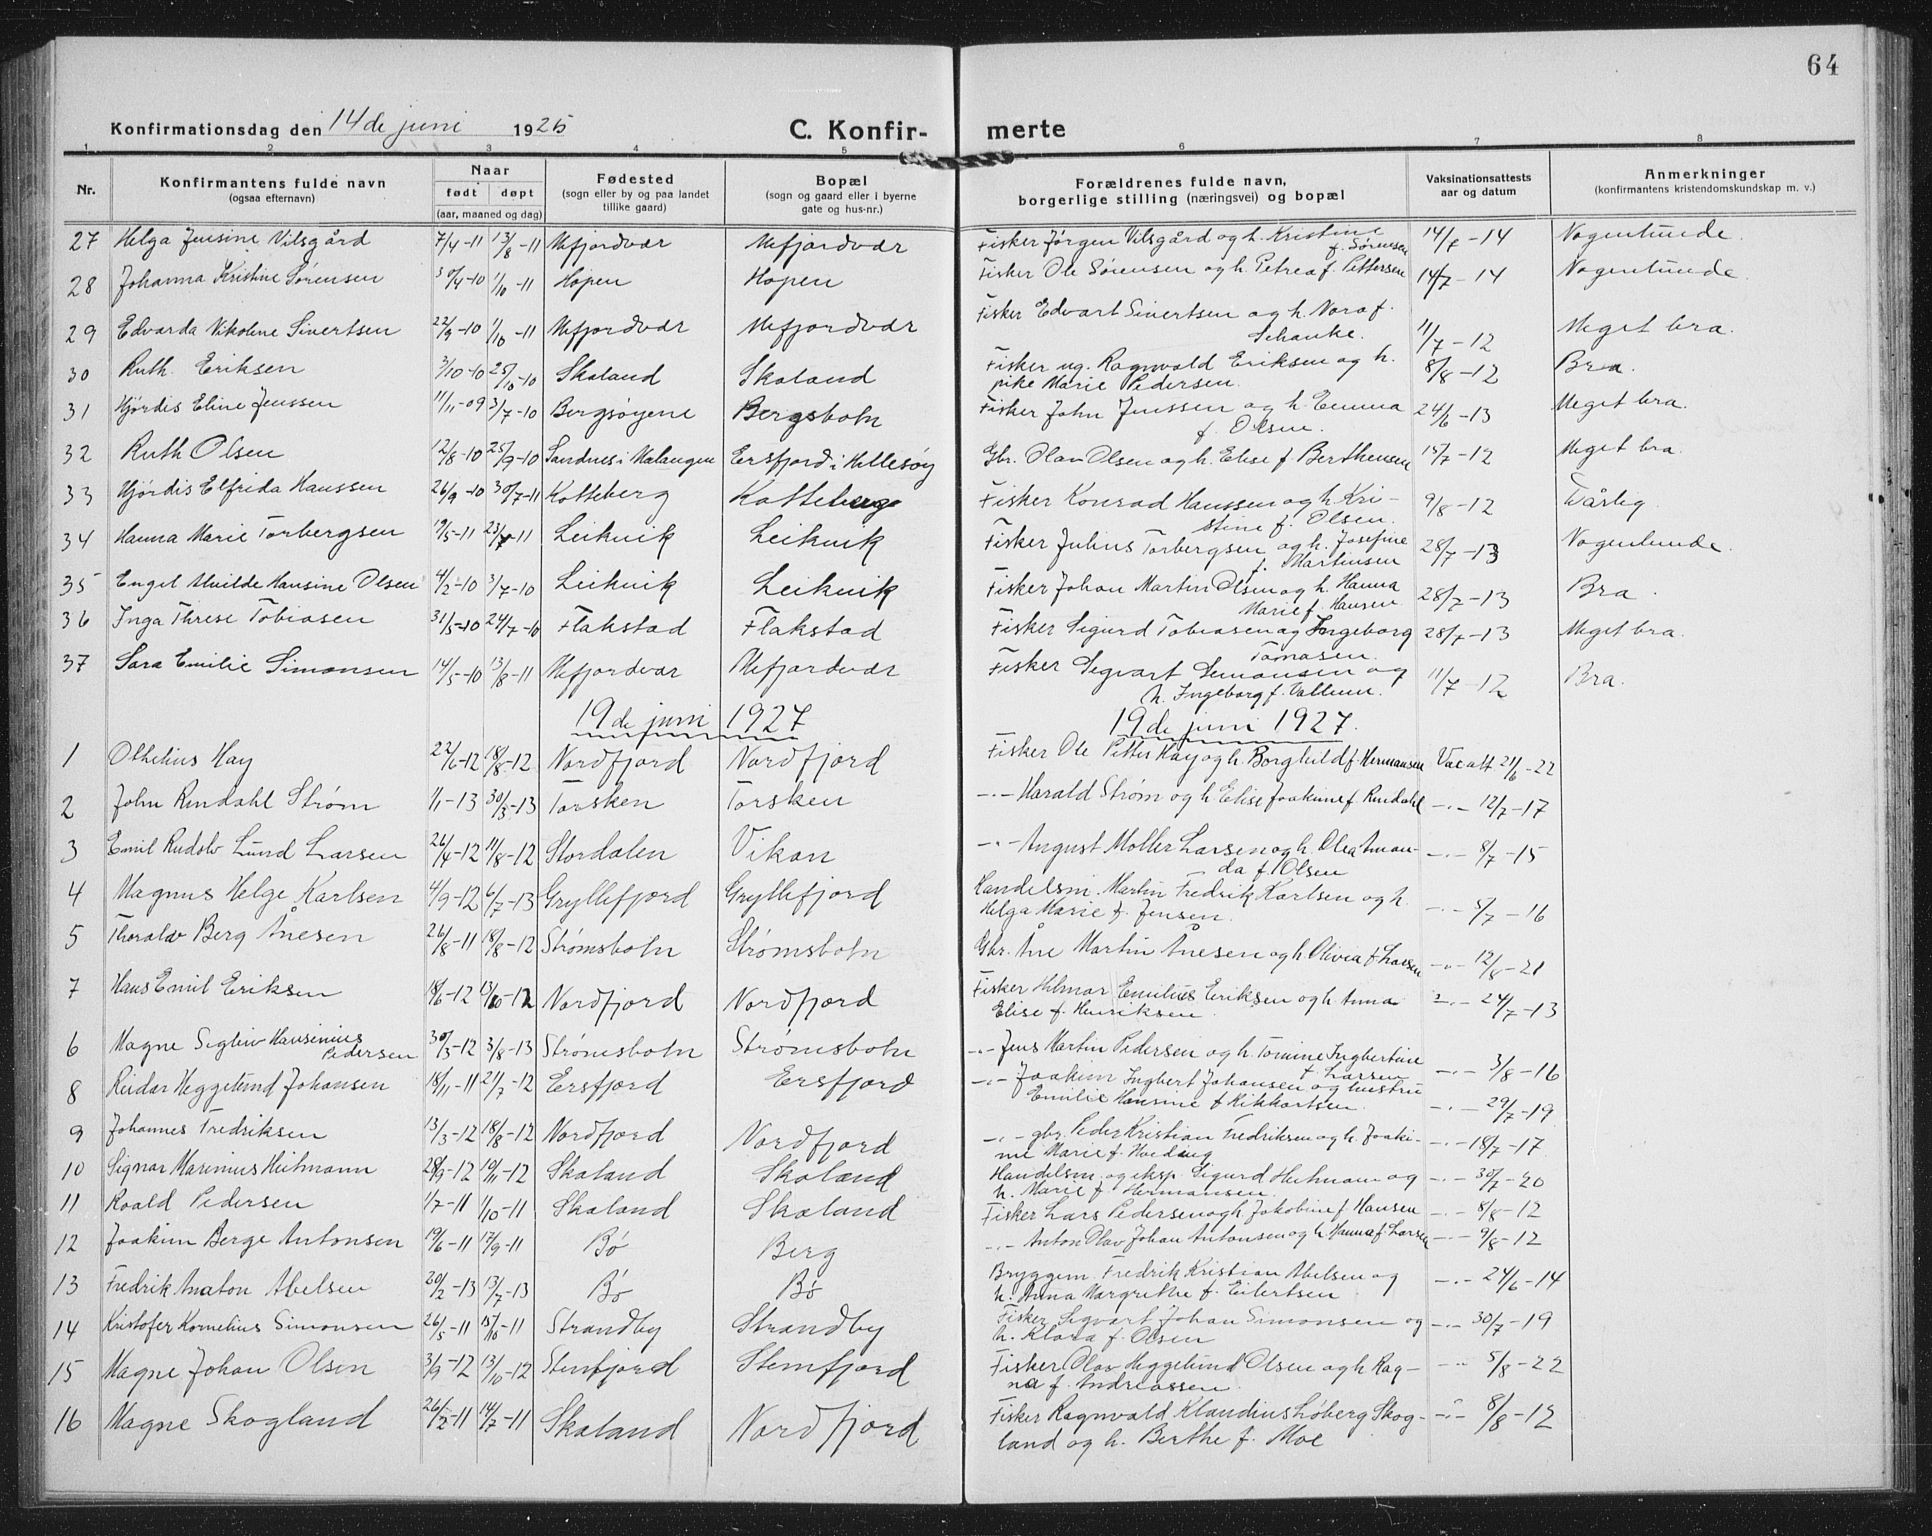 64
Konfirmationsdag den 14 de juni 1925 C. Konfir- merte
1 2 3 4 5 6 7 8
Nr. Konfirmantens fulde navn (ogsaa efternavn) Naar født døpt (aar, maaned og dag) Fødested (sogn eller by og paa landet tillike gaard) Bopæl (sogn og gaard eller i byerne gate og hus-nr.) Forældrenes fulde navn, borgerlige stilling (næringsvei) og bopæl Vaksinationsattests aar og datum Anmerkninger (konfirmantens kristendomskundskap m. v.)
27 Helga Jensine Vilsgård 7/4-11 13/8-11 Mefjordvær Mefjordvær Fisker Jørgen Vilsgård og h. Kristine f. Sørensen 14/7-14 Nogenlunde.
28 Johanna Kristine Sørensen 30/4-10 1/10-11 Hopen Hopen Fisker Ole Sørensen og h. Petrea f. Pettersen 14/7-14 Nogenlunde.
29 Edvarda Nikoline Sivertsen 22/9-10 1/10-11 Mefjordvær Mefjordvær Fisker Edvart Sivertsen og h. Nora f. Schanke. 11/7-12 Meget bra.
30 Ruth Eriksen 3/10-10 25/10-10 Skaland Skaland Fisker ug. Ragnvald Eriksen og h. pike Marie Pedersen. 8/8-12 Bra.
31 Hjørdis Eline Jenssen 11/11-09 3/7-10 Bergsøyene Bergsbotn Fisker John Jenssen og h. Emma f. Olsen. 24/6-13 Meget bra.
32 Ruth Olsen 12/8-10 25/9-10 Sandnes i Malangen Ersfjord i Hillesøy Gbr. Olav Olsen og h. Elise f. Berthensen 15/7-12 Meget bra.
33 Hjørdis Elfrida Hanssen 26/9-10 30/7-11 Kotteberg Kotteberg Fisker Konrad Hanssen og h. Kristine f. Olsen. 9/8-12 Dårlig.
34 Hanna Marie Torbergsen 19/5-11 23/7-11 Leikvik Leikvik Fisker Julius Torbergsen og h. Josefine f. Martinsen 28/7-13 Nogenlunde.
35 Engel Mvilde Hansine Olsen 4/2-10 3/7-10 Leikvik Leikvik Fisker Johan Martin Olsen og h. Hanna Marie f. Hansen. 28/7-13 Bra.
36 Inga Threse Tobiasen 31/5-10 24/7-10 Flakstad Flakstad Fisker Sigurd Tobiasen og Ingeborg Tomasen. 28/7-13 Meget bra.
37 Sara Emilie Simonsen 14/5-10 13/8-11 Mefjordvær Mefjordvær Fisker Segvart Semonsen og h. Ingeborg f. Vallum. 11/7-12 Bra.
19 de juni 1927 19 de juni 1927.
1 Othelius Hay 22/6-12 18/8-12 Nordfjord Nordfjord Fisker Ole Petter Hay og h. Borghild f. Hermansen Vacatt 21/6-22
2 John Rindahl Strøm 1/1-13 30/3-13 Torsken Torsken -"- Harald Strøm og h. Elise Joakime f. Rindahl -"- 12/7-17
3 Emil Rudolv Lund Larsen 26/4-12 11/8-12 Stordalen Vikan -"- August Møller Larsen og h. Olea Amanda f. Olsen -"- 8/7-15
4 Magnus Helge Karlsen 4/9-12 6/7-13 Gryllefjord Gryllefjord Handelsm. Martin Fredrik Karlsen og h. Helga Marie f. Jensen. -"- 5/7-16
5 Thoralv Berg Ånesen 26/8-11 18/8-12 Strømsbotn Strømsbotn Gbr. Åne Martin Ånesen og h. Olivia f. Larsen -"- 12/8-21
7 Hans Emil Eriksen 18/6-12 13/10-12 Nordfjord Nordfjord Fisker Hilmar Emilius Eriksen og h. Anna Elise f. Henriksen. -"- 24/7-13
6 Magne Sigliv Hansinius Pedersen 30/3-12 3/8-13 Strømsbotn Strømsbotn -"- Jens Martin Pedersen og h. Tomine Ingbertine f. Larsen -"- 3/8-16
8 Reidar Heggelund Johansen 18/11-11 21/7-12 Ersfjord Ersfjord -"- Joakim Ingbert Johansen og hustru Emilie Hansine f. Rikkartsen. -"- 29/7-19
9 Johannes Fredriksen 13/3-12 18/8-12 Nordfjord Nordfjord -"- gbr. Peder Kristian Fredriksen og h. Joakime Marie f. Hoiding -"- 18/7-17
10 Signar Marinius Heitmann 28/9-12 19/11-12 Skaland Skaland Handelsm. og eksp. Sigurd Heitmann og h. Marie f. Hermansen. -"- 30/7-20
11 Roald Pedersen 1/7-11 1/10-11 Skaland Skaland Fisker Lars Pedersen og h. Jakobine f. Hansen -"- 8/8-12
12 Joakim Berge Antonsen 19/6-11 17/9-11 Bø Berg -"- Anton Olav Johan Antonsen og h. Hanna f. Larsen -"- 9/8-12
13 Fredrik Anaton Abelsen 20/2-13 13/7-13 Bø Bø Bryggem. Fredrik Kristian Abelsen og h. Anna Margrethe f. Eilertsen -"- 24/6-14
14 Kristofer Kornelius Simonsen 26/5-11 15/10-11 Strandby Strandby Fisker Sigvart Johan Simonsen og h. Klara f. Olsen -"- 30/7-19
15 Magne Johan Olsen 3/9-12 13/10-12 Stenfjord Stenfjord Fisker Olav Heggelund Olsen og h. Ragna f. Andreassen. -"- 5/8-22
16 Magne Skogland 26/2-11 14/7-11 Skaland Nordfjord Fisker Ragnvald Klaudius Løberg Skogland og h. Berthe f. Moe -"- 8/8-12